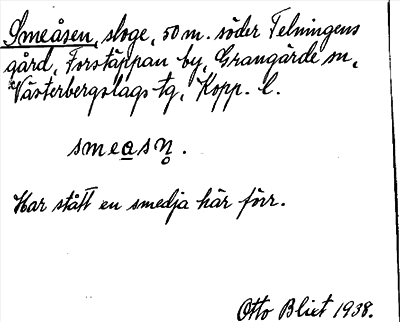 Smeåsen, sloge, 50 m. söder Telningens
gård, Forstäppan by, Grangärde sn,
Västerbergslags tg, Kopp. l.
smeasn̥.
Har stått en smedja här förr.
Otto Blixt 1938.